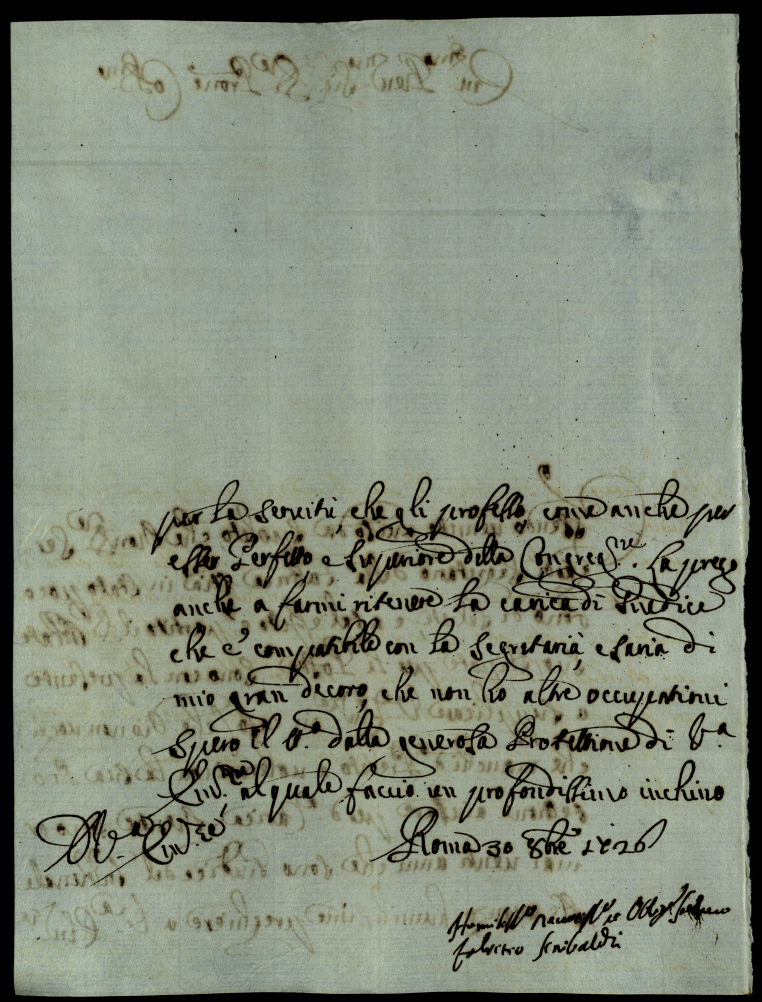 per la servitù, che gli professo, come anche per
esser Perfetto e superiore della Congreg.ne. La prego
anche a farmi ritenere la carica di Giudice
che e' compatibile con la segretaria, e saria di
mio gran decoro, che non ho altre occupationi
spero il tt.o dalla generosa Protettione di V.a
Em.za al quale faccio un profondissimo inchino
D V.a Em.za
Roma 30 8bre 1726
Humiliss.o Devotiss.o et Oblig.
Fabritio Sinibaldi